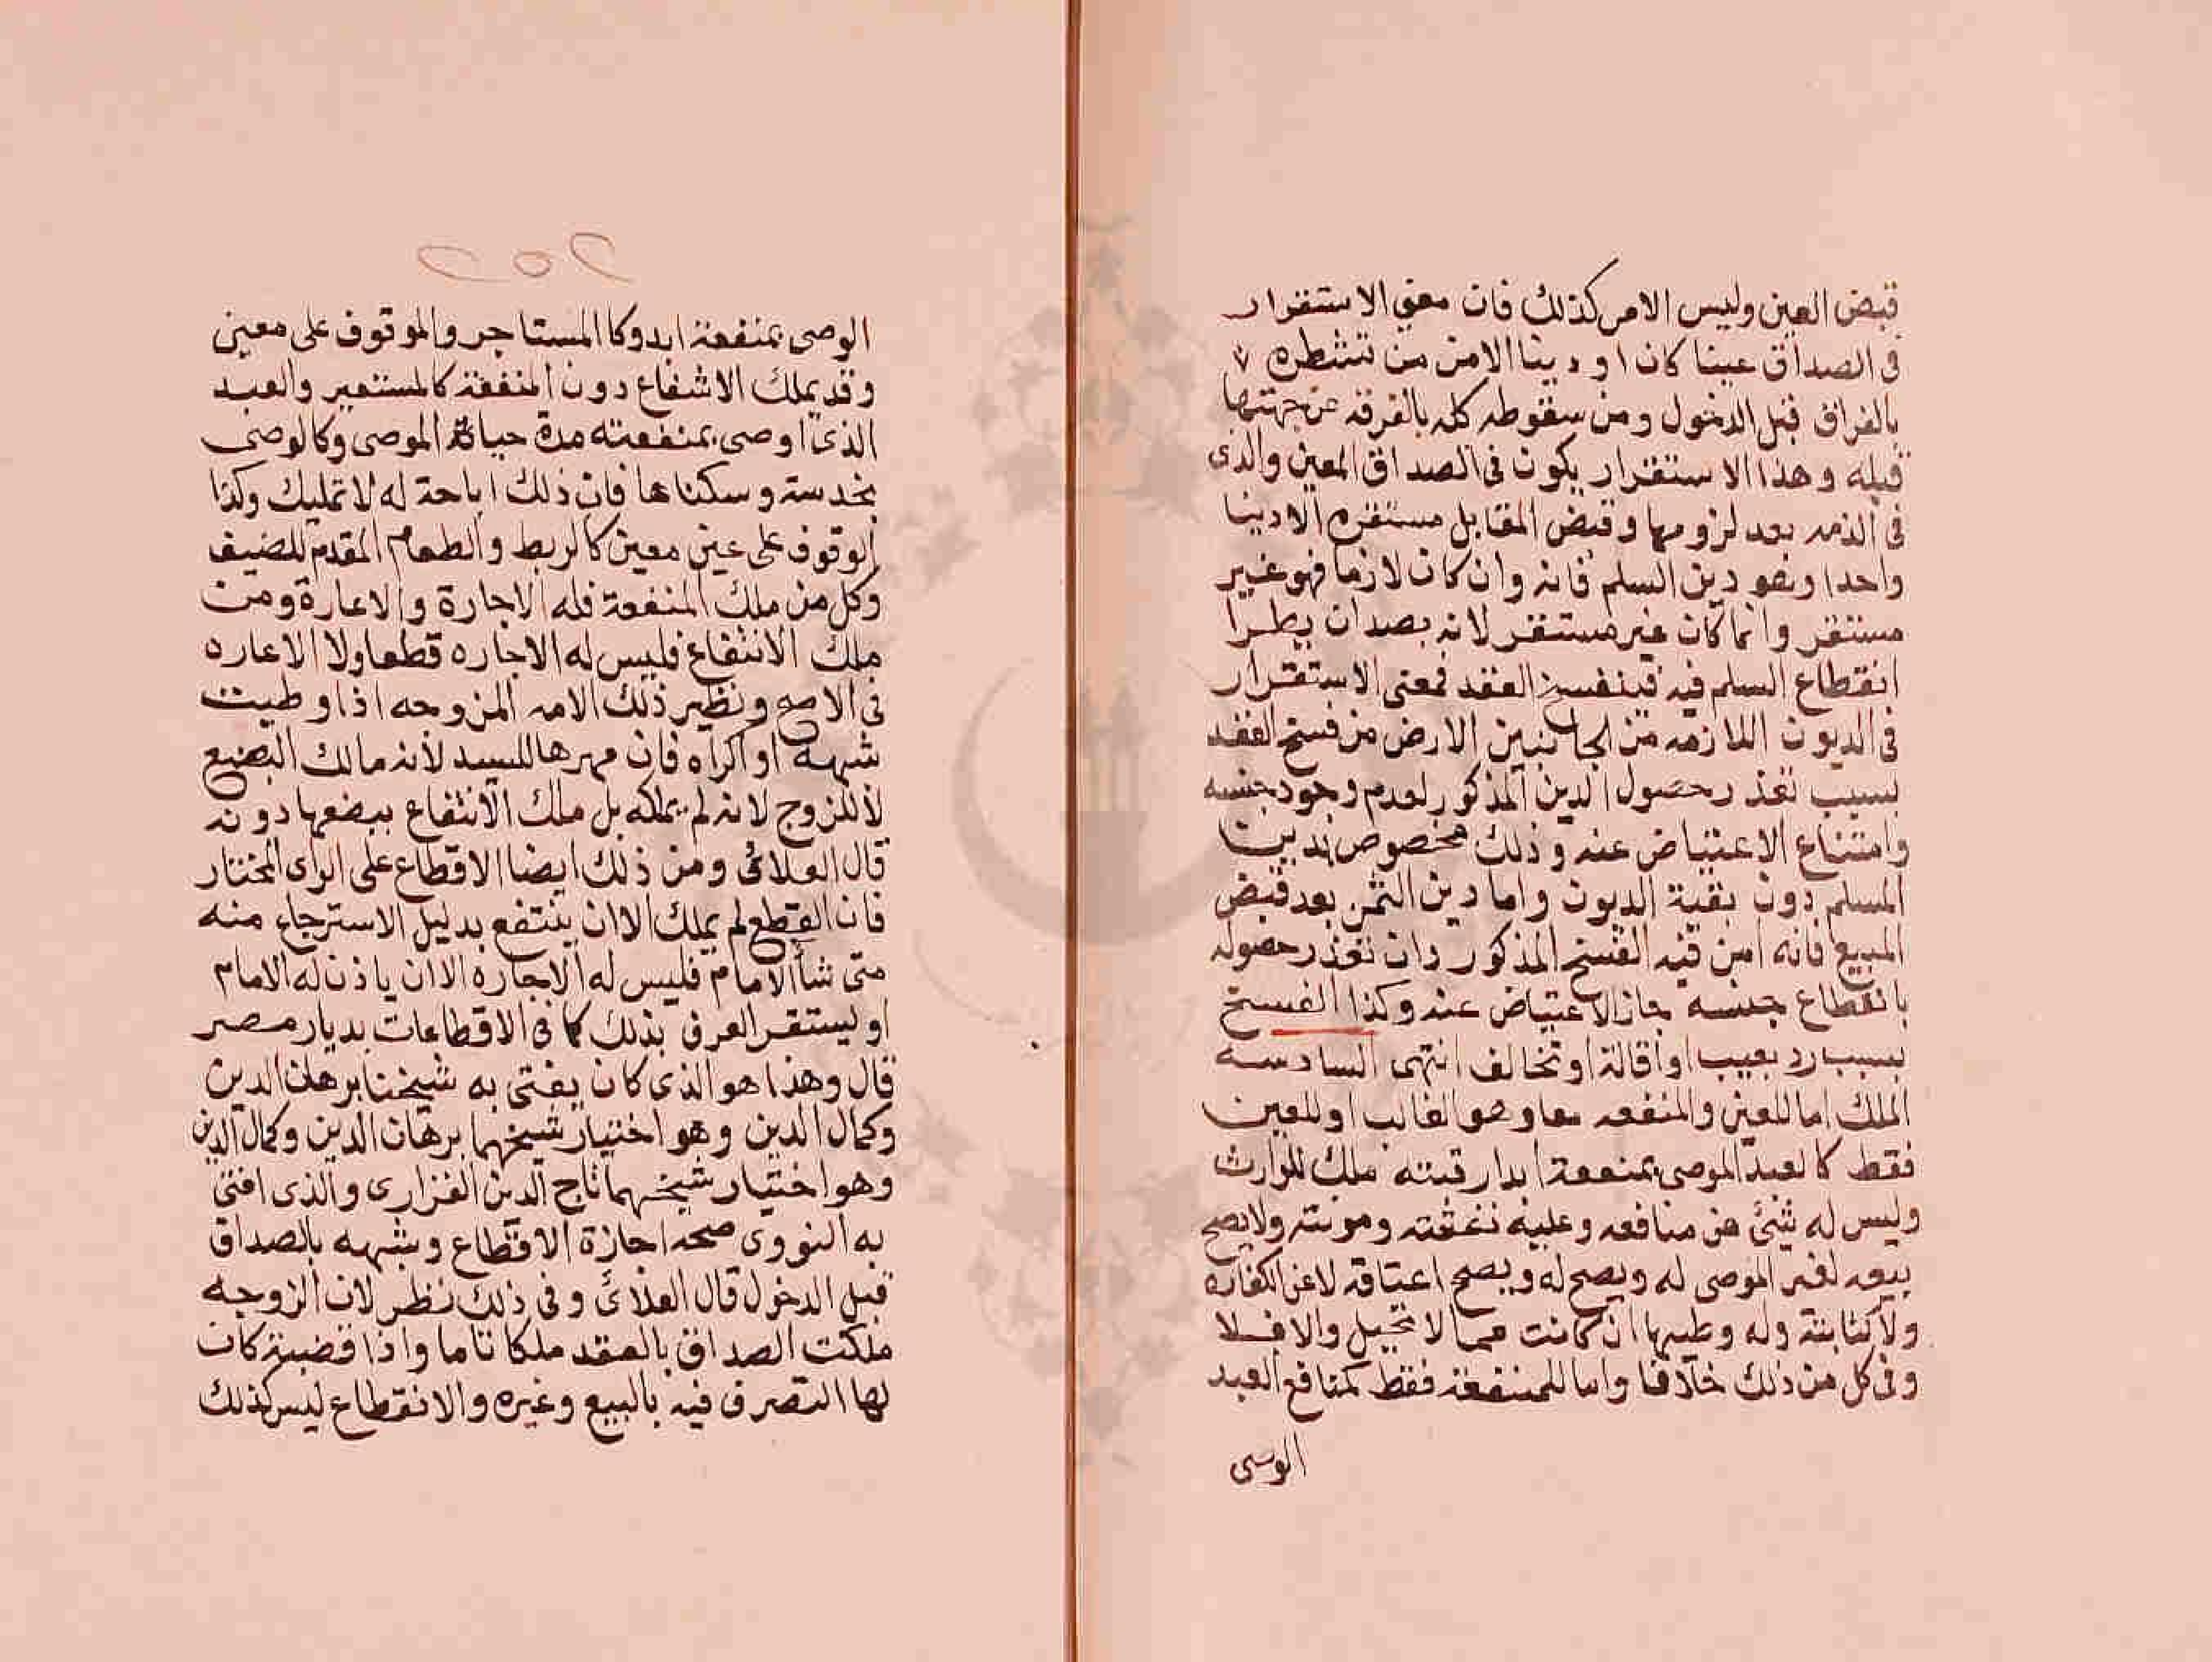 قبض العين وليس الامر كذلك فان معنى الاستقرار
فى الصداق عينا كان او دينا الامن من تشطره
بالفراق قبل الدخول ومن سقوطه كله بالفرقه من جهتها
قبله وهذا الاستقرار يكون فى الصداق المعين والذى
فى الذمه بعد لزومها وقبض المقابل مستقره الا دينا
واحدا وهو دين السلم فانه وان كان لازما فهو غير
مستقر وانما كان غير مستقر لانه بصدان يطرا
انقطاع السلم فيه فينفسخ العقد فمعنى الاستقرار
فى الديون اللازمه من الجانبين الارض من فسخ العقد
بسبب تعذر حصول الدين المذكور لعدم وجود جنسه
وامتناع الاعتياض عنه وذلك مخصوص بدين
المسلم دون بقية الديون واما دين الثمن بعد قبض
المبيع فانه امن فيه الفسخ المذكور وان تعذر حصوله
بانقطاع جنسه جاز الاعتياض عنه وكذا الفسخ
بسبب رد بعيب او اقالة او تخالف انتهى السادسه
الملك اما للعين والمنفعه معا وهو الغالب او للعين
فقط كالعبد الموصى بمنفعة ابدا رقبته ملك للوارث
وليس له شئ من منافعه وعليه نفقته ومونته ولا يصح
بيعه لغير الموصى له ويصح له ويصح اعتاقه لا عن الكفاره
ولا كتابته وله وطيها ان كانت مما لا تحبل والا فلا
وفى كل من ذلك خلافا واما للمنفعة فقط كمنافع العبد
الوصى
٢٥٥
الوصى بمنفعة ابدو كا المستاجر والموقوف على معين
وقد يملك الاشفاع دون المنفعة كالمستعير والعبد
الذى اوصى بمنفعته مدة حياة الموصى وكالوصى
بخدمته وسكناها فان ذلك اباحة له لا تمليك وكذا
الوقوف على عين معين كالربط والطعام المقدم للضيف
وكل من ملك المنفعة فله الاجارة والاعارة ومن
ملك الانتفاع فليس له الاجاره قطعا ولا الاعاره
فى الاصح ونظير ذلك الامه المزوجه اذا وطيت
شبهة او اكراه فان مهرها للسيد لانه مالك البضع
لا للزوج لانه لم يملكه بل ملك الانتفاع ببضعها دونه
قال العلائى ومن ذلك ايضا الاقطاع على الراى المختار
فان القطع لم يملك الا ان ينتفع بدليل الاسترجاع منه
متى شا الامام فليس له الاجاره الا ان ياذن له الامام
او ليستقر العرف بذلك كما فى الاقطاعات بديار مصر
قال وهذا هو الذى كان يفتى به شيخنا برهان الدين
وكمال الدين وهو اختيار شيخهما برهان الدين وكمال الدين
وهو اختيار شيخهما تاج الدين الفزارى والذى افتى
به النووى صحه اجازة الاقطاع وشبهه بالصداق
قبل الدخول قال العلائ وفى ذلك نظر لان الزوجه
ملكت الصداق بالعقد ملكا تاما واذا قضبة كان
لها التصرف فيه بالبيع وغيره والانقطاع ليس كذلك